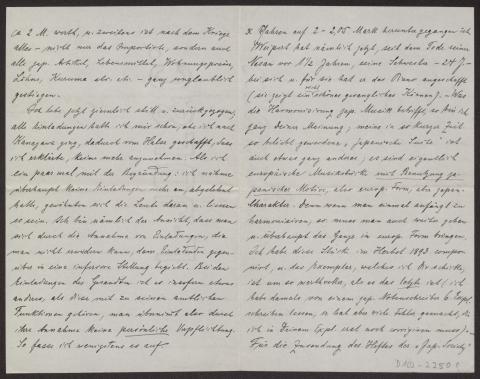 ca 2 M. werth, u. zweitens ist nach dem Kriege
alles – nicht nur das Importirte, sondern auch
alle jap. Artikel, Lebensmittel, Wohnungspreise,
Löhne, Kuruma etc. etc. – ganz unglaublich
gestiegen.
Ich lebe jetzt ziemlich still u. zurückgezogen;
alle Einladungen hatte ich mir schon, ehe ich nach
Kanagawa ging, dadurch vom Halse geschafft, dass
ich erklärte, keine mehr anzunehmen. Als ich
ein paar mal mit der Begründung: ich nehme
überhaupt keine Einladungen mehr an, abgelehnt
hatte, gewöhnten sich die Leute daran u. liessen
es sein. Ich bin nämlich der Ansicht, dass man
sich durch die Annahme von Einladungen, die
man nicht erwidern kann, dem Einladenden gegen-
über in eine inferiore Stellung begiebt. Bei den
Einladungen des Gesandten ist es insofern etwas
anderes, als dies mit zu seinen amtlichen
Funktionen gehört, man übernimmt also durch
ihre Annahme keine persönliche Verpflichtung.
So fasse ich wenigstens es auf.
Jahren auf 2 – 2,05 Mark heruntergegangen ist.
Weipert hat nämlich jetzt, seit dem Tode seiner
Nesan vor 1½ Jahren, seine Schwester – 24 J. –
bei sich u. für sie hat er das Piano angeschafft
(sie zeigt nicht sein schönes gesangliches Können). – Was
die Harmonisirung jap. Musik betrifft, so bin ich
ganz Deiner Meinung; meine in so kurzer Zeit
so beliebt gewordene „Japanische Suite" ist
auch etwas ganz anderes, es sind eigentlich
europäische Musikstücke mit Benutzung ja-
panischer Motive, also europ. Form, aber japan.
Charakter. Denn wenn man einmal anfängt zu
harmonisiren, so muss man auch weiter gehen
u. überhaupt das Ganze in europ. Form bringen.
Ich habe diese Stücke im Herbst 1893 compo-
nirt, u. das Exemplar, welches ich Dir schickte,
ist um so werthvoller, als es das letzte ist (ich
habe damals von einem jap. Notenschreiber 6 Expl.
schreiben lassen, er hat aber viele Fehler gemacht, die
ich in Deinem Expl. erst noch corrigiren muss).
Für die Zusendung des Heftes der „Jap. Society"